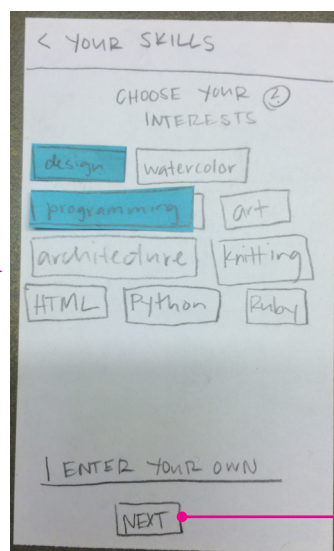 < YOUR SKILLS
CHOOSE YOUR ?
INTERESTS
design watercolor
programming art
architecture knitting
HTML Python Ruby
ENTER YOUR OWN
NEXT